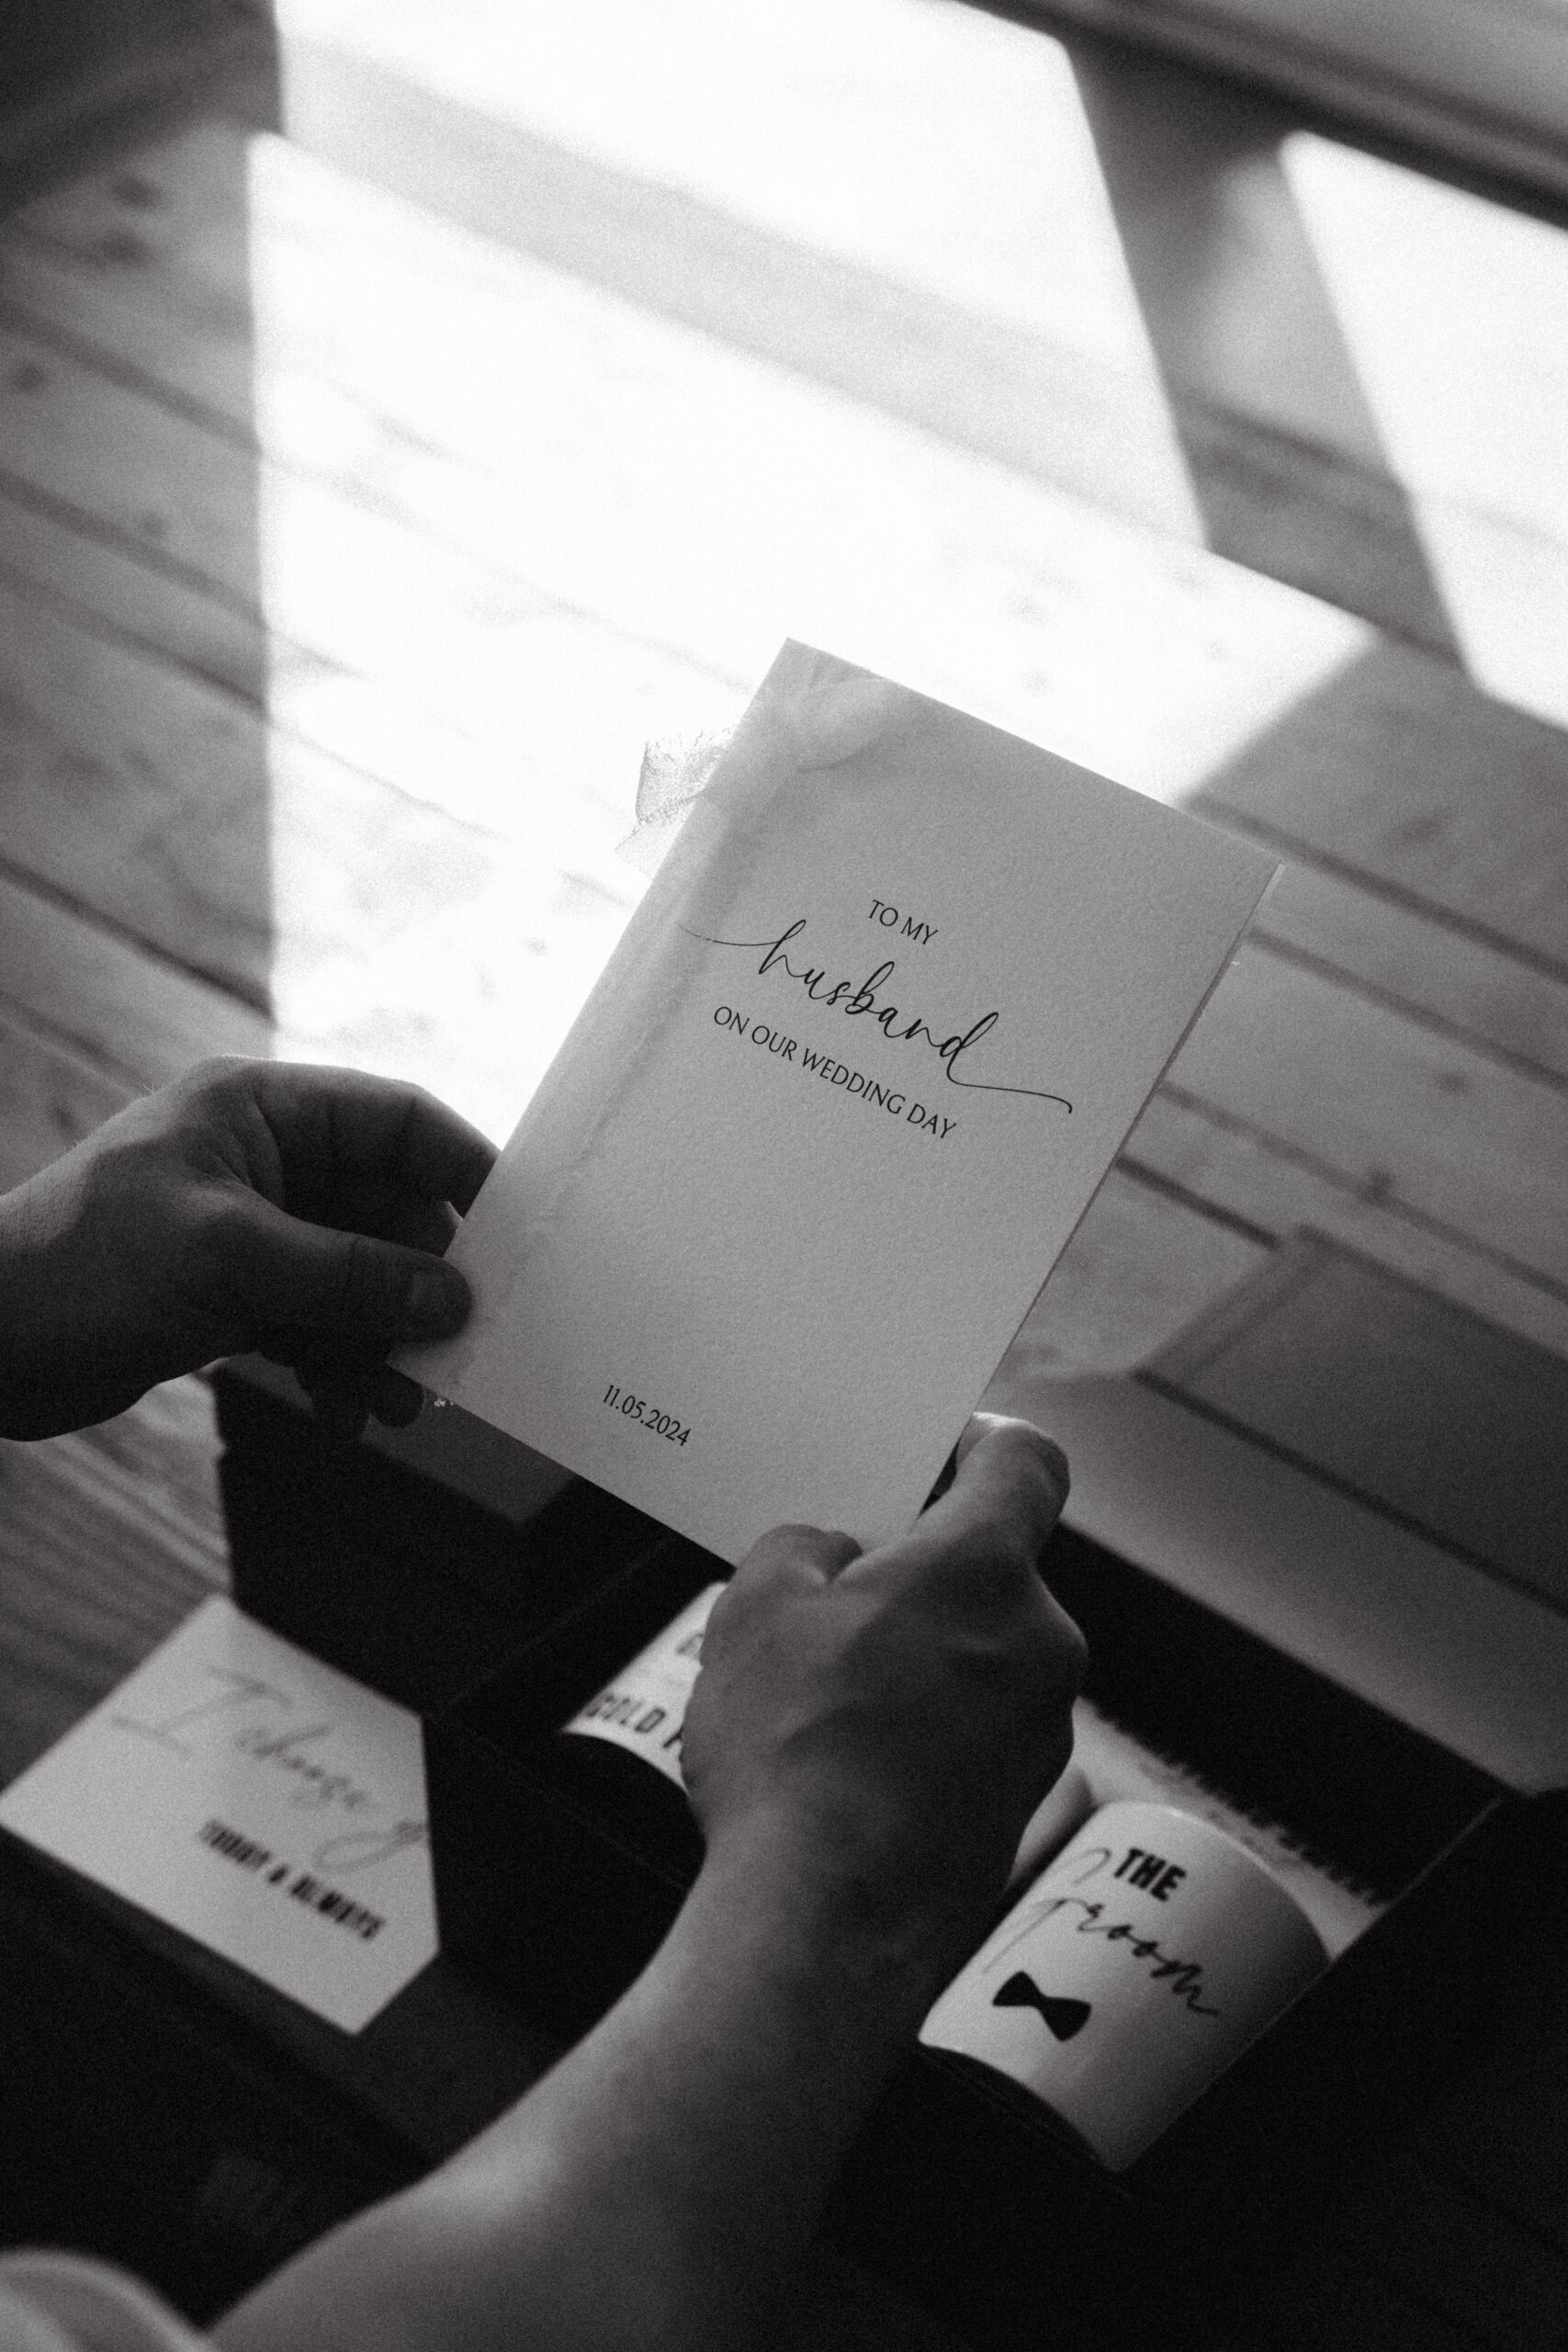 TO MY
husband
ON OUR WEDDING DAY
11.05.2024
I choose
TODAY & ALWAYS
COLD
THE
groom